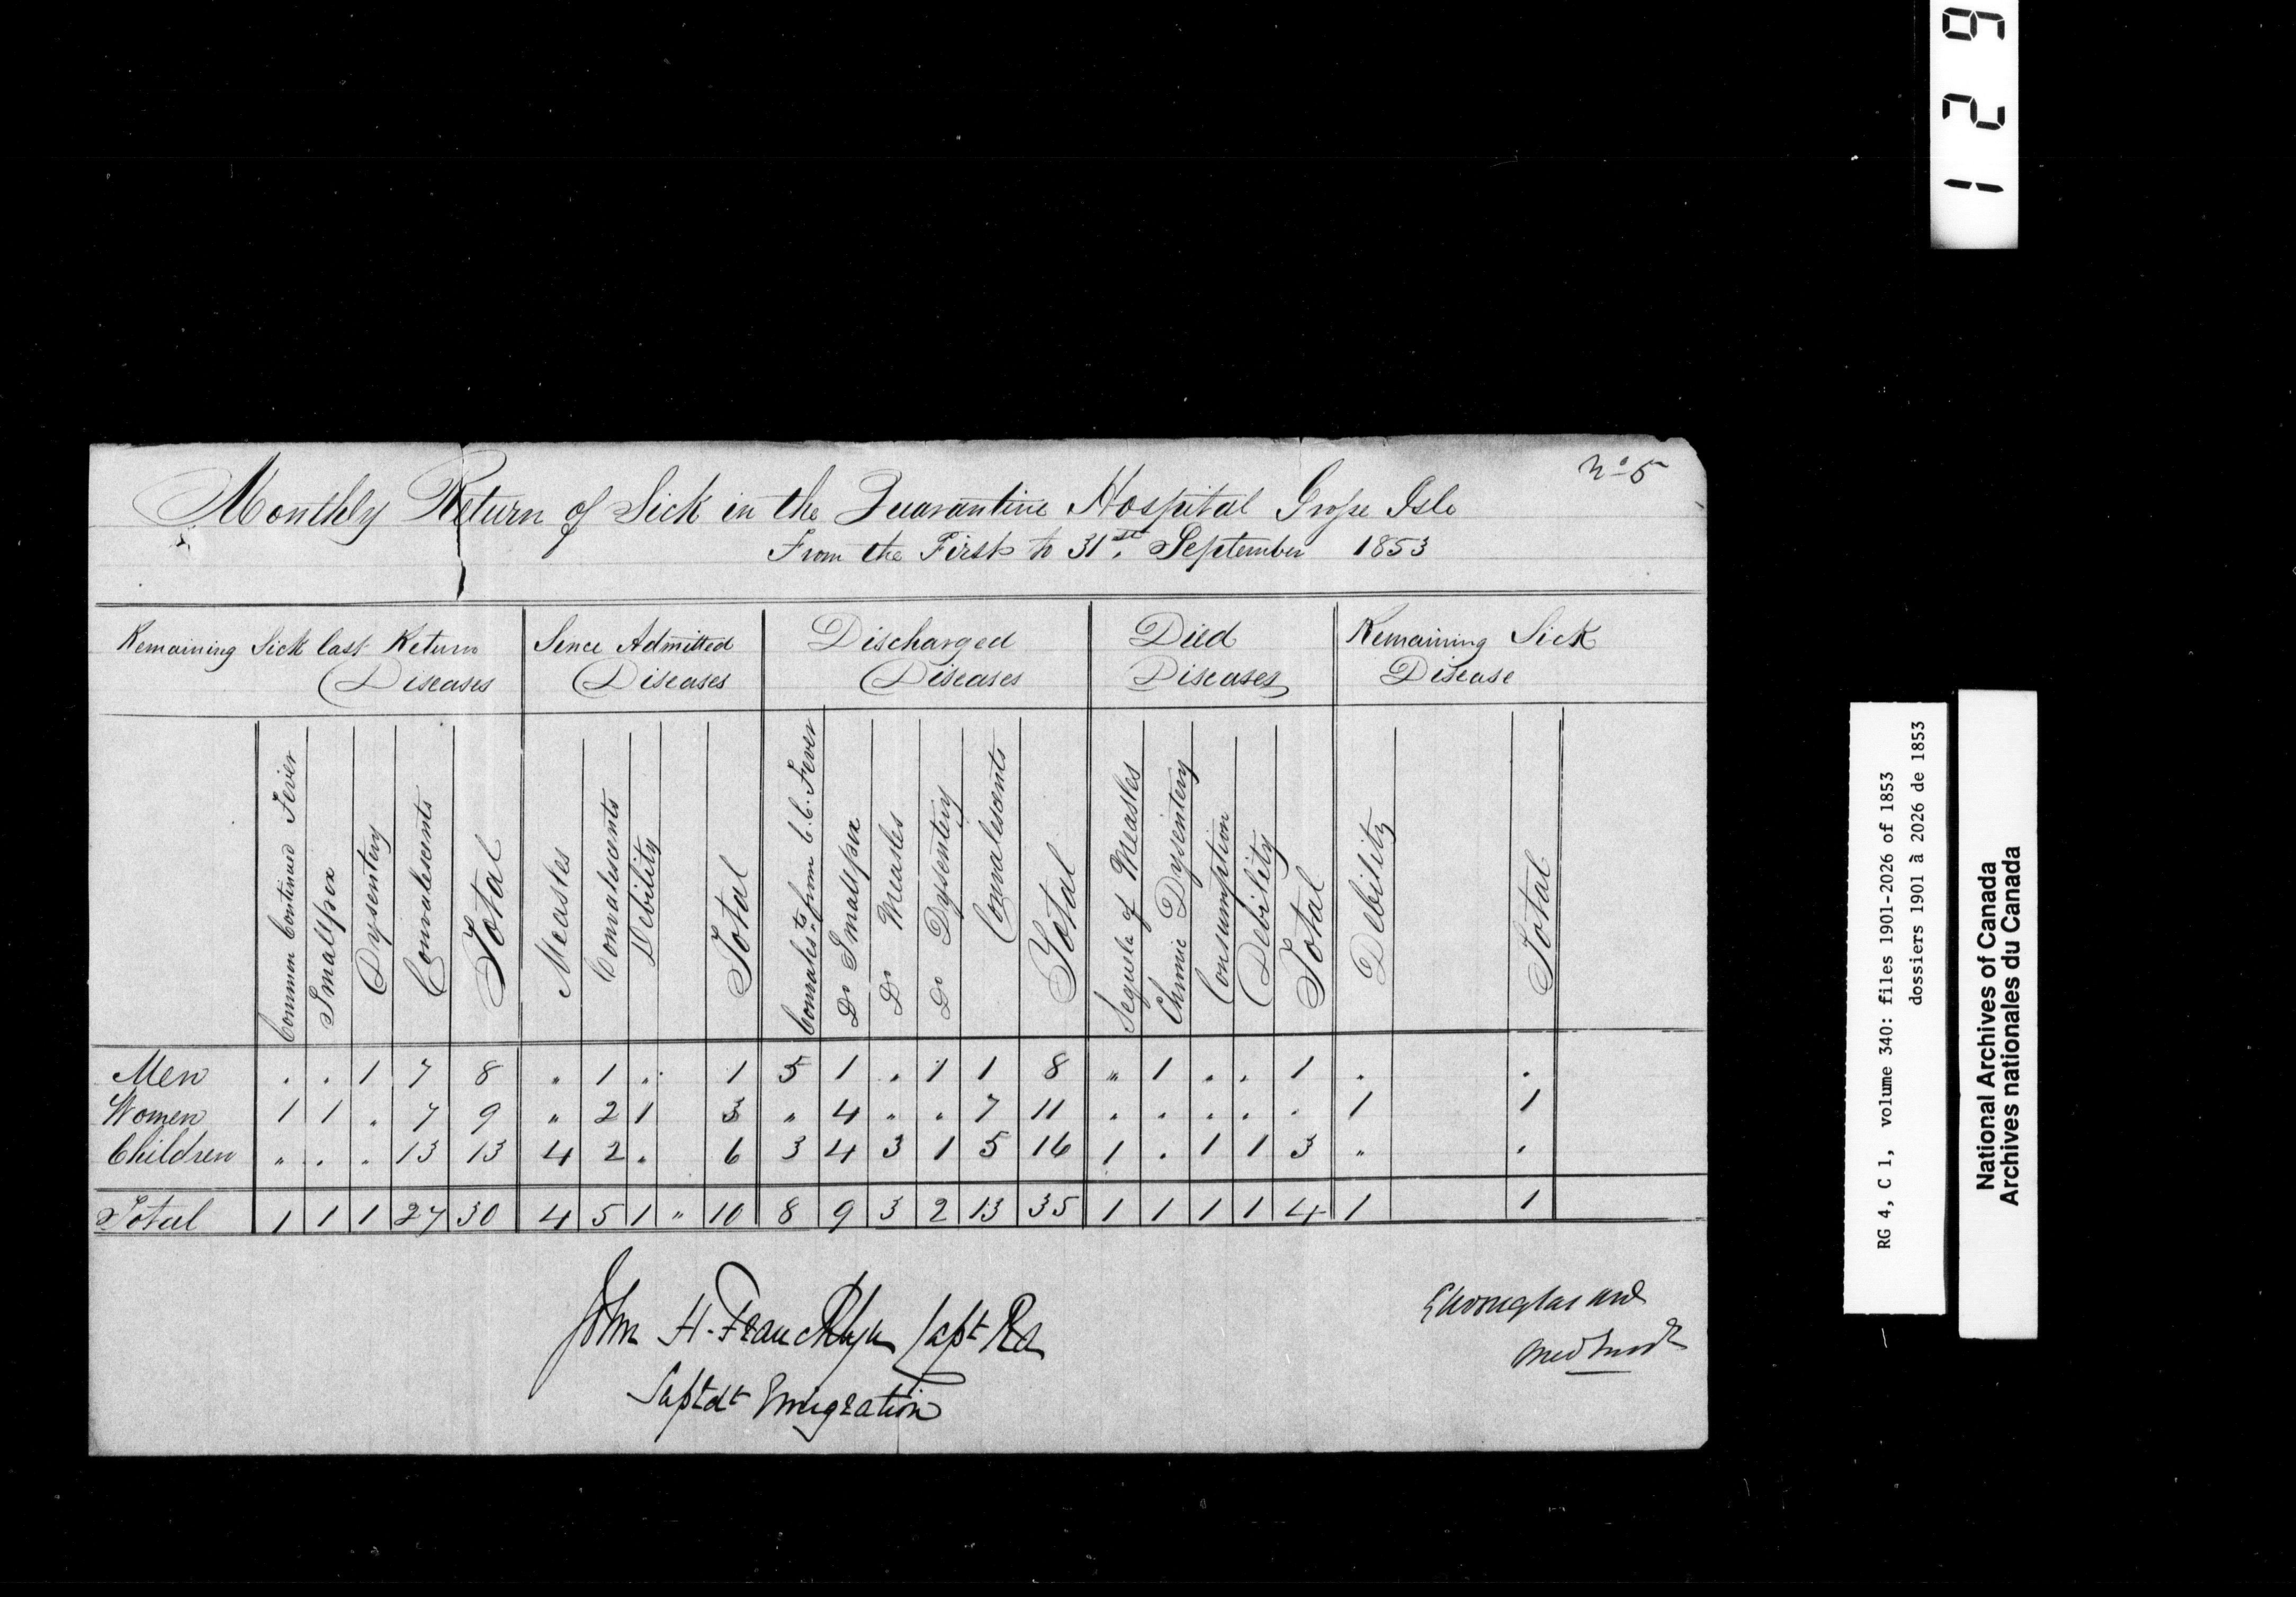 129
No 5
Monthly Return of Sick in the Quarantine Hospital Grosse Isle
From the First to 31st. September 1853
Remaining Sick last Return Diseases | Since Admitted Diseases | Discharged Diseases | Died Diseases | Remaining Sick Disease
Common Continued Fever | Smallpox | Dysentery | Convalescents | Total | Measles | Convalescents | Debility | | Total | Convalests. from C.C. Fever | Do Smallpox | Do Measles | Do Dysentery | Convalescents | Total | Sequela of Measles | Chronic Dysentery | Consumption | Debility | Total | Debility | Total
Men | . | . | 1 | 7 | 8 | " | 1 | . | | 1 | 5 | 1 | . | 1 | 1 | 8 | " | 1 | . | . | 1 | . | .
Women | 1 | 1 | . | 7 | 9 | " | 2 | 1 | | 3 | " | 4 | . | . | 7 | 11 | . | . | . | . | . | 1 | 1
Children | " | . | . | 13 | 13 | 4 | 2 | . | | 6 | 3 | 4 | 3 | 1 | 5 | 16 | 1 | . | 1 | 1 | 3 | " | .
Total | 1 | 1 | 1 | 27 | 30 | 4 | 5 | 1 | " | 10 | 8 | 9 | 3 | 2 | 13 | 35 | 1 | 1 | 1 | 1 | 4 | 1 | 1
John H. Francklyn Capt RA
Suptdt Emigration
Douglas
Med
RG 4, C 1, volume 340: files 1901-2026 of 1853
dossiers 1901 à 2026 de 1853
National Archives of Canada
Archives nationales du Canada